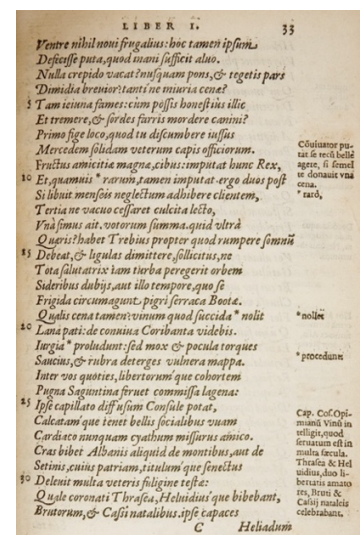 LIBER I. 33
Ventre nihil noui frugalius: hoc tamen ipsum
Defecisse puta, quod inani sufficit aluo.
Nulla crepido vacat? nusquam pons, & tegetis pars
Dimidia breuior? tanti ne iniuria cenæ?
5 Tam ieiuna fames: cùm possis honestius illic
Et tremere, & sordes farris mordere canini?
Primo fige loco, quod tu discumbere iussus
Mercedem solidam veterum capis officiorum.
Fructus amicitiæ magnæ, cibus: imputat hunc Rex,
10 Et, quamuis * rarum, tamen imputat. ergo duos post
Si libuit menseis neglectum adhibere clientem,
Tertia ne vacuo cessaret culcita lecto,
Vnà simus ait. votorum summa. quid vltrà
Quæris? habet Trebius propter quod rumpere somnū
15 Debeat, & ligulas dimittere, sollicitus, ne
Tota salutatrix iam turba peregerit orbem
Sideribus dubijs, aut illo tempore, quo se
Frigida circumagunt pigri serraca Bootæ.
Qualis cena tamen? vinum quod succida * nolit
20 Lana pati: de conuiua Coribanta videbis.
Iurgia * proludunt: sed mox & pocula torques
Saucius, & rubra deterges vulnera mappa.
Inter vos quoties, libertorum'que cohortem
Pugna Saguntina feruet commissa lagena?
25 Ipse capillato diffusum Consule potat,
Calcatam'que tenet bellis socialibus vuam
Cardiaco nunquam cyathum missurus amico.
Cras bibet Albanis aliquid de montibus, aut de
Setinis, cuius patriam, titulum'que senectus
30 Deleuit multa veteris fuligine testæ:
Quale coronati Thrasea, Heluidius'que bibebant,
Brutorum, & Cassii natalibus. ipse capaces
C Heliadum
Cōuiuator putat
se rectè bellè
agere, si semel
te donauit vna
cena.
* rarò,
* nollet
* procedunt
Cap. Cos. Opimianū
Vinū intelligit,
quod
seruatum est in
multa sæcula.
Thrasea & Heluidius,
duo libertatis
amatores,
Bruti &
Cassij natalcis
celebrabant.